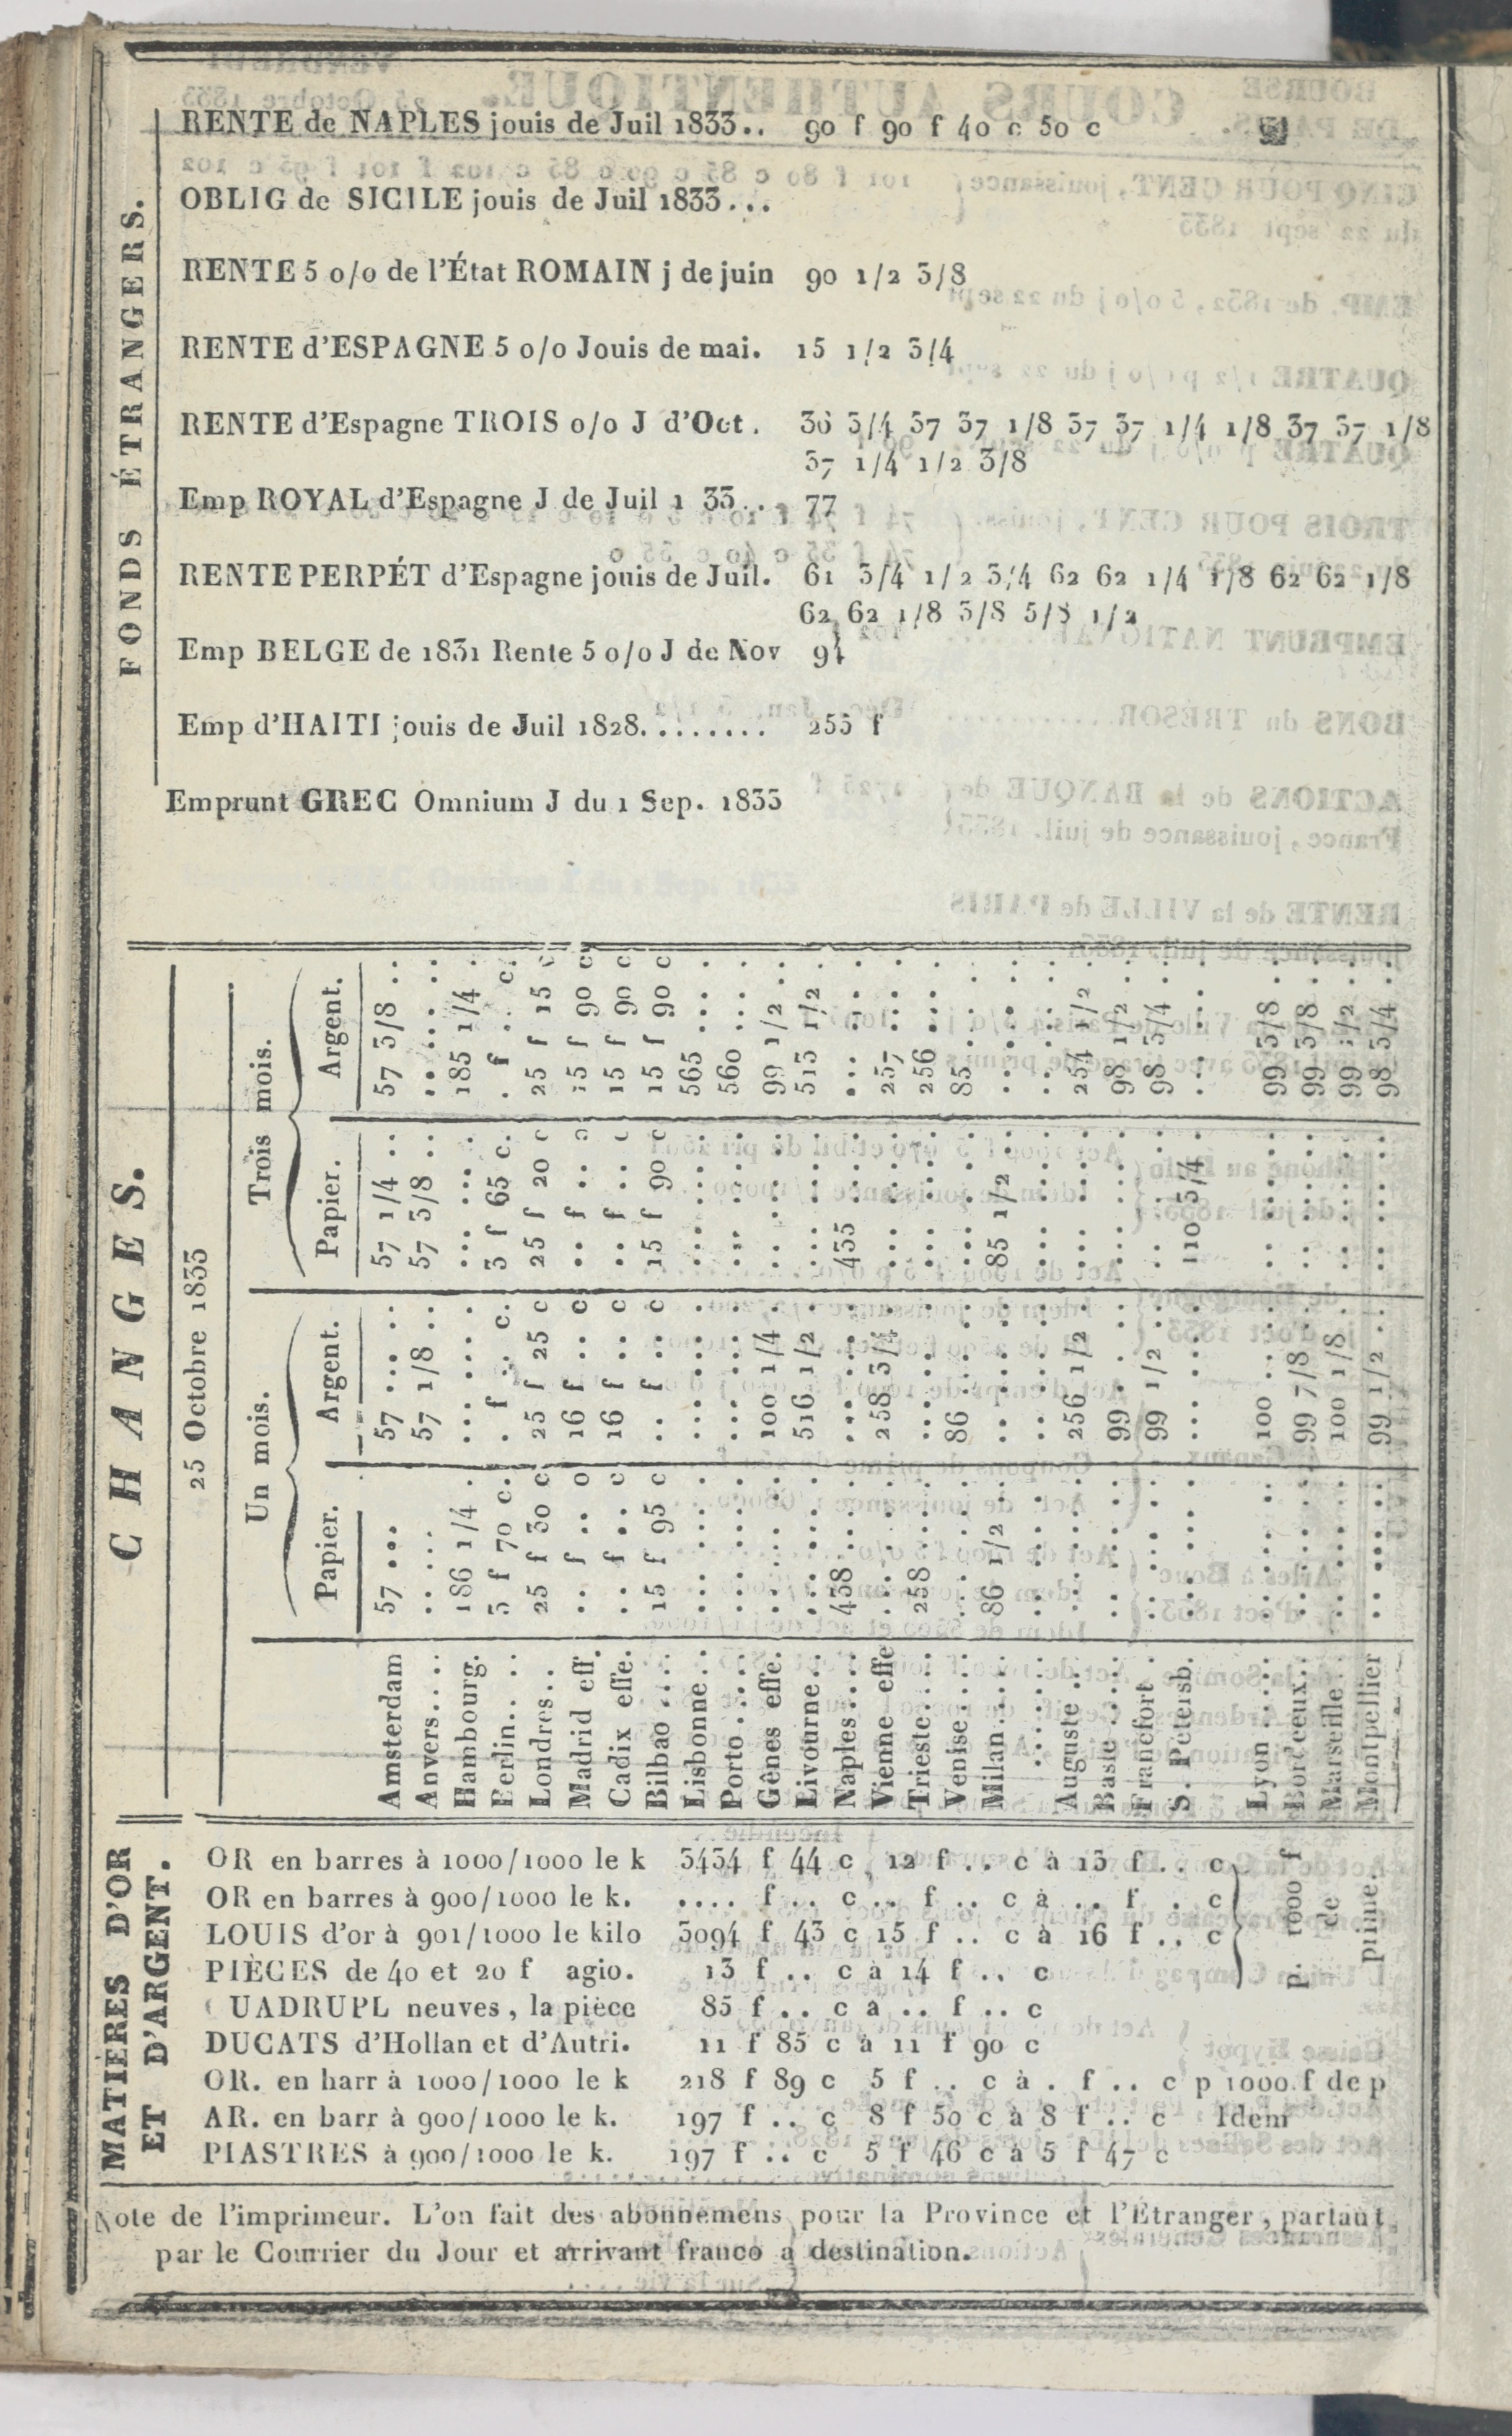 FONDS ÉTRANGERS.
RENTE de NAPLES jouis de Juil 1833.. 90 f 90 f 40 c 50 c
OBLIG de SICILE jouis de Juil 1833...
RENTE 5 o/o de l'État ROMAIN j de juin 90 1/2 3/8
RENTE d'ESPAGNE 5 o/o Jouis de mai. 15 1/2 3/4
RENTE d'Espagne TROIS o/o J d'Oct. 36 3/4 37 37 1/8 37 37 1/4 1/8 37 37 1/8
37 1/4 1/2 3/8
Emp ROYAL d'Espagne J de Juil 1 33.. 77
RENTE PERPÉT d'Espagne jouis de Juil. 61 3/4 1/2 3/4 62 62 1/4 1/8 62 62 1/8
62 62 1/8 3/8 5/8 1/2
Emp BELGE de 1831 Rente 5 o/o J de Nov 94
Emp d'HAITI jouis de Juil 1828........ 255 f
Emprunt GREC Omnium J du 1 Sep. 1833
CHANGES.
25 Octobre 1833
Un mois. Trois mois.
Papier. Argent. Papier. Argent.
Amsterdam 57 ... 57 ... .. 57 1/4 .. 57 3/8 ..
Anvers.... .. ... 57 1/8 .. 57 3/8 .. .. ... ..
Hambourg. 186 1/4 . ... ... . ... ... . 185 1/4 .
Berlin.... 3 f 70 c. . f .. c. 3 f 65 c. . f .. c.
Londres... 25 f 30 c 25 f 25 c 25 f 20 c 25 f 15 c
Madrid eff. .. f .. c 16 f .. c .. f .. c 15 f 90 c
Cadix effe. .. f .. c 16 f .. c .. f .. c 15 f 90 c
Bilbao .... 15 f 95 c .. f .. c 15 f 90 c 15 f 90 c
Lisbonne... ... ... . ... ... . ... ... . 565 ... .
Porto..... ... ... . ... ... . ... ... . 560 ... .
Gênes effe. .. ... . 100 1/4 . .. ... . 99 1/2 .
Livourne... ... ... . 516 1/2 . ... ... . 513 1/2 .
Naples.... 438 ... . ... ... . 435 ... . ... ... .
Vienne effe ... ... . 258 3/4 . ... ... . 257 ... .
Trieste.... 258 ... . ... ... . ... ... . 256 ... .
Venise.... .. ... . 86 ... . .. ... . 85 ... .
Milan..... 86 1/2 . .. ... . 85 1/2 . .. ... .
...... .. ... . .. ... . ... ... . .. ... .
Auguste ... ... ... . 256 1/2 . ... ... . 254 1/2 .
Basle ..... .. ... . 99 ... . .. ... . 98 1/2 .
Francfort . .. ... . 99 1/2 . .. ... . 98 3/4 .
S. Petersb. ... ... . ... ... . 110 3/4 . ... ... .
Lyon ..... .. ... . 100 ... . .. ... . 99 3/8 .
Bordeeux... .. ... . 99 7/8 . .. ... . 99 3/8 .
Marseille... .. ... . 100 1/8 . .. ... . 99 1/2 .
Montpellier .. ... . 99 1/2 . .. ... . 98 3/4 .
MATIERES D'OR
ET D'ARGENT.
OR en barres à 1000/1000 le k 3434 f 44 c 12 f .. c à 13 f .. c
OR en barres à 900/1000 le k. .... f .. c .. f .. c à .. f .. c
LOUIS d'or à 901/1000 le kilo 3094 f 43 c 15 f .. c à 16 f .. c
PIÈCES de 40 et 20 f agio. 13 f .. c à 14 f .. c
p. 1000 f
de
prime.
UADRUPL neuves, la pièce 85 f .. c à .. f .. c
DUCATS d'Hollan et d'Autri. 11 f 85 c à 11 f 90 c
OR. en barr à 1000/1000 le k 218 f 89 c 5 f .. c à . f .. c p 1000 f de p
AR. en barr à 900/1000 le k. 197 f .. c 8 f 50 c à 8 f .. c Idem
PIASTRES à 900/1000 le k. 197 f .. c 5 f 46 c à 5 f 47 c
Note de l'imprimeur. L'on fait des abonnemens pour la Province et l'Etranger, partant
par le Courrier du Jour et arrivant franco a destination.